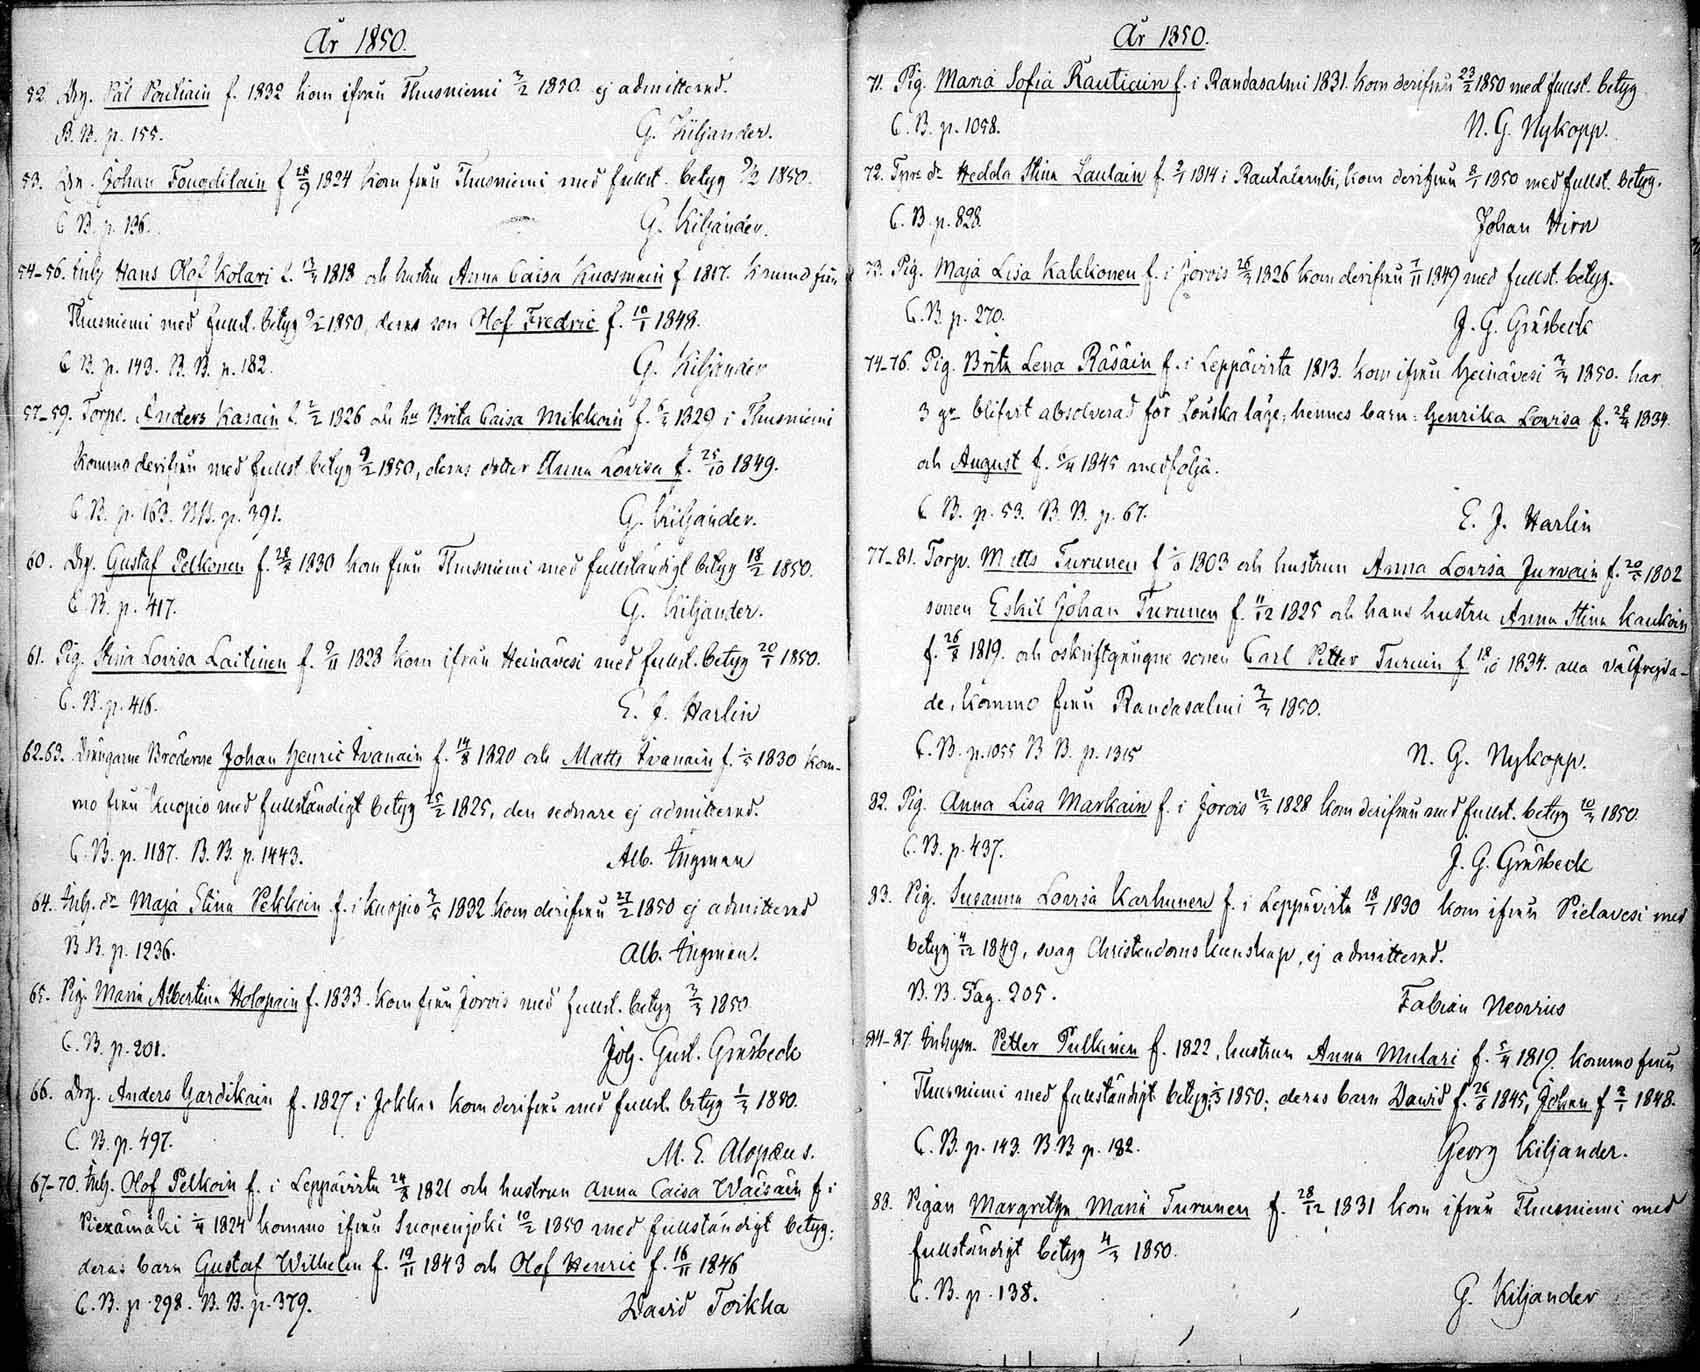 År 1850.
52. Drg. Pål Poutiain f. 1832 kom ifrån Thusniemi 3/2 1850 ej admitterad.
B. B. p. 155. G. Kiljander.
53. Dr. Johan Fougdilain f. 28/9 1824 kom från Thusniemi med fullst. betyg 9/2 1850.
C. B. p. 136. G. Kiljander.
54-56. Inhy Hans Olof Kolari f. 1818 och hustru Anna Caisa Kuosmain f. 1817. komma från
Thusniemi med fullst. betyg 9/2 1850, deras son Olof Fredric f. 10/1 1848.
C. B. p. 143. B. B. p. 182. G. Kiljander
57-59. Torpe. Anders Kasain f. 1826 och hu Brita Caisa Mikkoin f. 1829 i Thusniemi
komma derifrån med fullst. betyg 9/2 1850, deras dotter Anna Lovisa f. 25/10 1849.
C. B. p. 163. B.B. p. 391. G. Kiljander.
60. Drg. Gustaf Pelkonen f. 28/8 1830 kom från Thusniemi med fullständigt betyg 18/2 1850.
C. B. p. 417. G. Kiljander.
61. Pig. Stina Lovisa Laitinen f. 9/11 1828 kom ifrån Heinävesi med fullst. betyg 20/1 1850.
C. B. p. 416. E. J. Harlin
62.63. Drängarne Bröderne Johan Henric Ivanain f. 14/8 1820 och Matts Ivanain f. 1830 kom-
mo från Kuopio med fullständigt betyg 25/2 1825, den sednare ej admitterad.
C. B. p. 1187. B. B. p. 1443. Alb. Ingman
64. Inh. dr Maja Stina Pekkain f. i Kuopio 3/5 1832 kom derifrån 27/2 1850 ej admitterad
B. B. p. 1236. Alb. Ingman.
65. Pig. Maria Albertina Holopain f. 1833. kom från Jorois med fullst. betyg 3/3 1850.
C. B. p. 201. Joh. Gust. Gråsbeck
66. Drg. Anders Gardikain f. 1827 i Jokkas kom derifrån med fullst. betyg 1/3 1850.
C. B. p. 497. M. E. Alopæus.
67-70. Inh. Olof Pelkoin f. i Leppävirta 24/8 1821 och hustrun Anna Caisa Wäisäin f i
Piexämäki 1824 kommo ifrån Suonenjoki 10/2 1850 med fullständigt betyg;
deras barn Gustaf Wilhelm f. 19/11 1843 och Olof Henric f. 16/11 1846
C. B. p. 298. B. B. p. 379. David Toikka
År 1850.
71. Pig. Maria Sofia Rautiain f. i Randasalmi 1831. kom derifrån 23/2 1850 med fullst. betyg
C. B. p. 1058. N. G. Nykopp.
72. Torp. dr Hedda Stina Laulain f. 2/1 1814 i Rautalambi, kom derifrån 8/1 1850 med fullst. betyg.
C. B. p. 828. Johan Hirn
73. Pig. Maja Lisa Kakkonen f. i Jorois 26/3 1826 kom derifrån 7/11 1849 med fullst. betyg.
C. B. p. 270. J. G. Gråsbeck
74-76. Pig. Brita Lena Räsäin f. i Leppävirta 1813. kom ifrån Heinävesi 3/3 1850. har
3 gr blifvit absolverad för Lönska läge; hennes barn: Henrika Lovisa f. 28/4 1834.
och August f. 5/4 1845 medfölja.
C. B. p. 53. B. B. p. 67. E. J. Harlin
77-81. Torp. Matts Turunen f. 1803 och hustrun Anna Lovisa Jurvain f. 20/5 1802
sonen Eskil Johan Turunen f. 11/12 1825 och hans hustru Anna Stina Kaukoin
f. 26/8 1819. och oskriftgångne sonen Carl Petter Turuin f. 18/10 1834. alla välfrejda-
de, kommo från Randasalmi 3/3 1850.
C. B. p. 1055 B. B. p. 1315 N. G. Nykopp.
82. Pig. Anna Lisa Markain f. i Jorois 12/3 1828 kom derifrån med fullst. betyg 10/3 1850.
C. B. p. 437. J. G. Gråsbeck
83. Pig. Susanna Lovisa Karhunen f. i Leppävirta 18/1 1830 kom ifrån Pielavesi med
betyg 4/12 1849, svag Christendoms kunskap, ej admitterad.
B. B. Pag. 205. Fabian Neovius
84-87. Inhysn. Petter Pulkinen f. 1822, hustrun Anna Mulari f. 5/4 1819. kommo från
Thusniemi med fullständigt betyg 1850; deras barn David f. 26/6 1845, Johan f 2/1 1848.
C. B. p. 143. B. B p. 182. Georg Kiljander.
88. Pigan Margretha Maria Turunen f. 28/12 1831 kom ifrån Thusniemi med
fullständigt betyg 4/3 1850.
C. B. p. 138. G. Kiljander